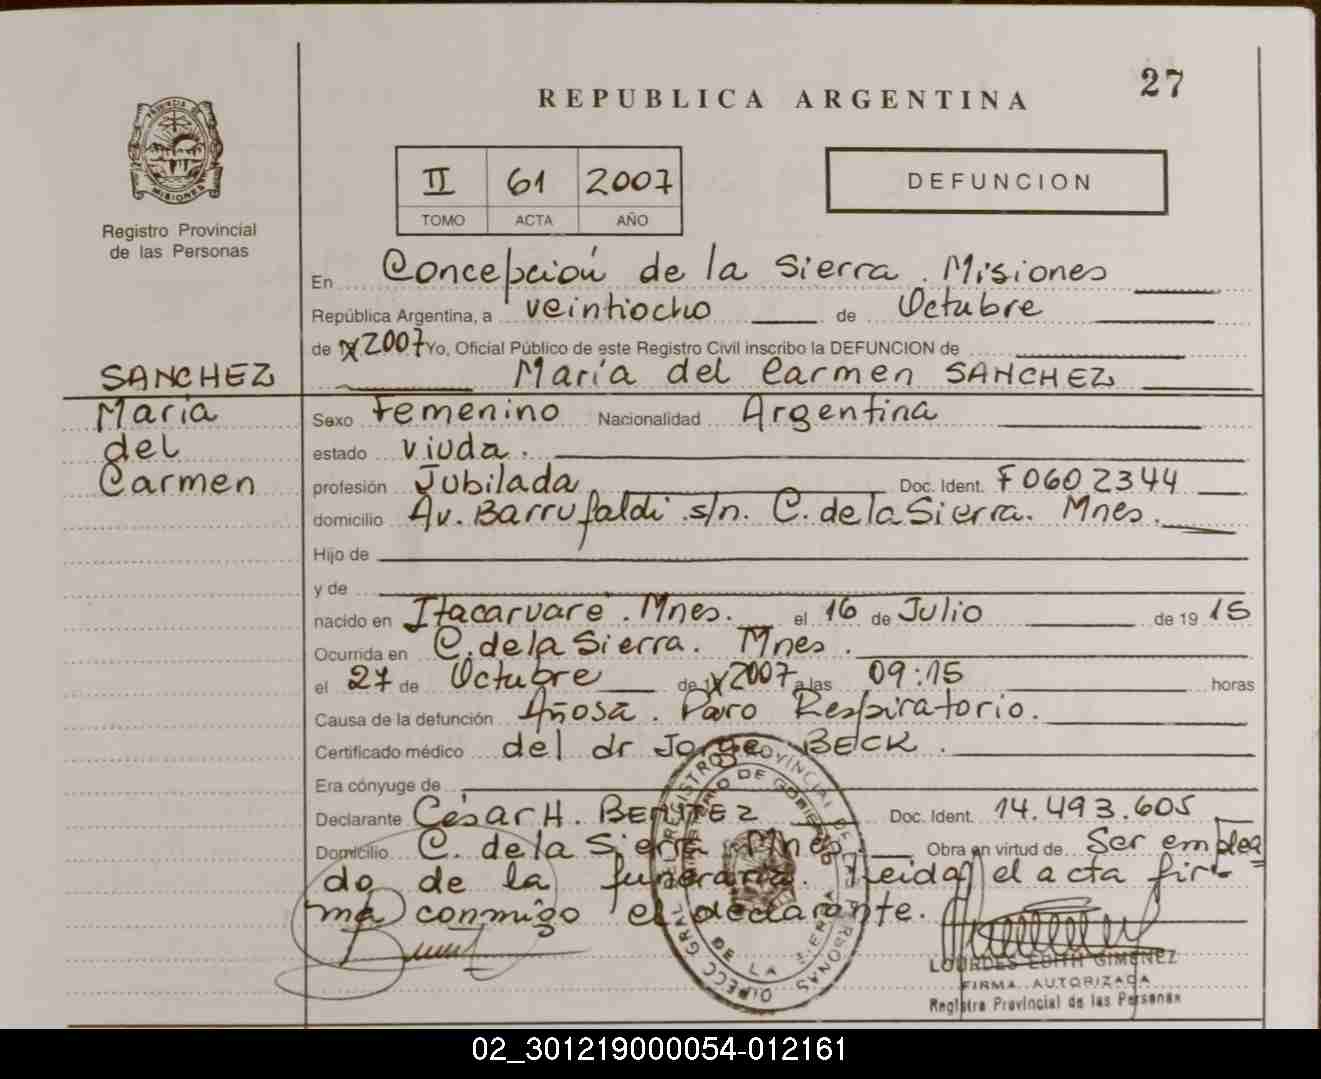 27
REPUBLICA ARGENTINA
PROVINCIA DE MISIONES
Registro Provincial
de las Personas
II 61 2007
TOMO ACTA AÑO
DEFUNCION
En Concepción de la Sierra. Misiones
República Argentina, a veintiocho de Octubre
de 2007 Yo, Oficial Público de este Registro Civil inscribo la DEFUNCION de
María del Carmen SANCHEZ
SANCHEZ
María
del
Carmen
Sexo Femenino Nacionalidad Argentina
estado viuda.
profesión Jubilada Doc. Ident. F0602344
domicilio Av. Barrufaldi s/n. C. de la Sierra. Mnes.
Hijo de
y de
nacido en Itacaruaré. Mnes. el 16 de Julio de 19 15
Ocurrida en C. de la Sierra. Mnes.
el 27 de Octubre de 2007 a las 09:15 horas
Causa de la defunción Añosa. Paro Respiratorio.
Certificado médico del dr Jorge BECK.
Era cónyuge de
Declarante César H. BENITEZ Doc. Ident. 14.493.605
Domicilio C. de la Sierra Mnes Obra en virtud de Ser emplea
do de la funeraria. Leida el acta fir
ma conmigo el declarante.
LOURDES EDITH GIMENEZ
FIRMA AUTORIZADA
Registro Provincial de las Personas
02_301219000054-012161